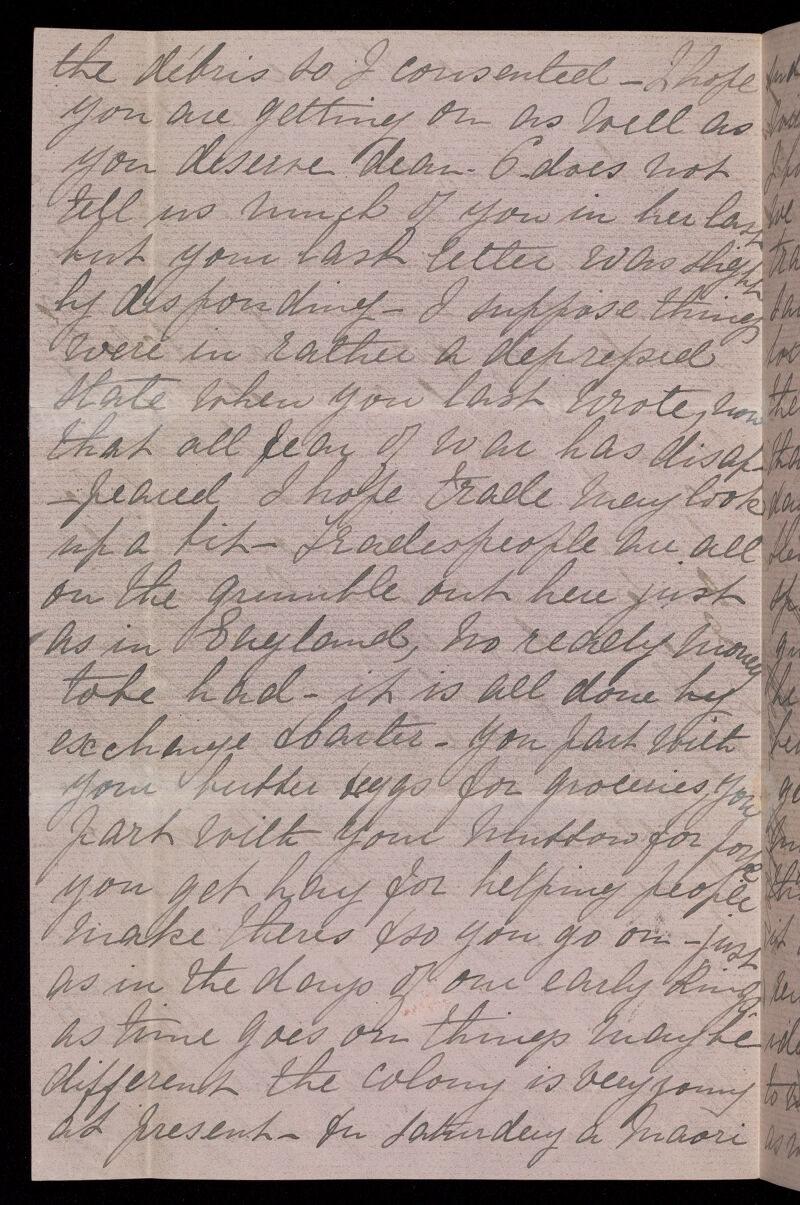 the débris so I consented - I hope
you are getting on as well as
you deserve dear. C. does not
tell us much of you in her last
but your last letter was slight
ly disponding - I suppose things
were in rather a depressed
state when you last wrote, now
that all fear of war has disap-
-peared I hope trade may look
up a bit - Tradespeople are all
on the grumble out here just
as in England, no ready money
to be had - it is all done by
exchange & barter - you part with
your butter & eggs for groceries, you
part with your mutton for pork
you get hay for helping people
make theirs & so you go on - just
as in the days of our early kings
as time goes on things may be
different the colony is very young
at present - On Saturday a Maori